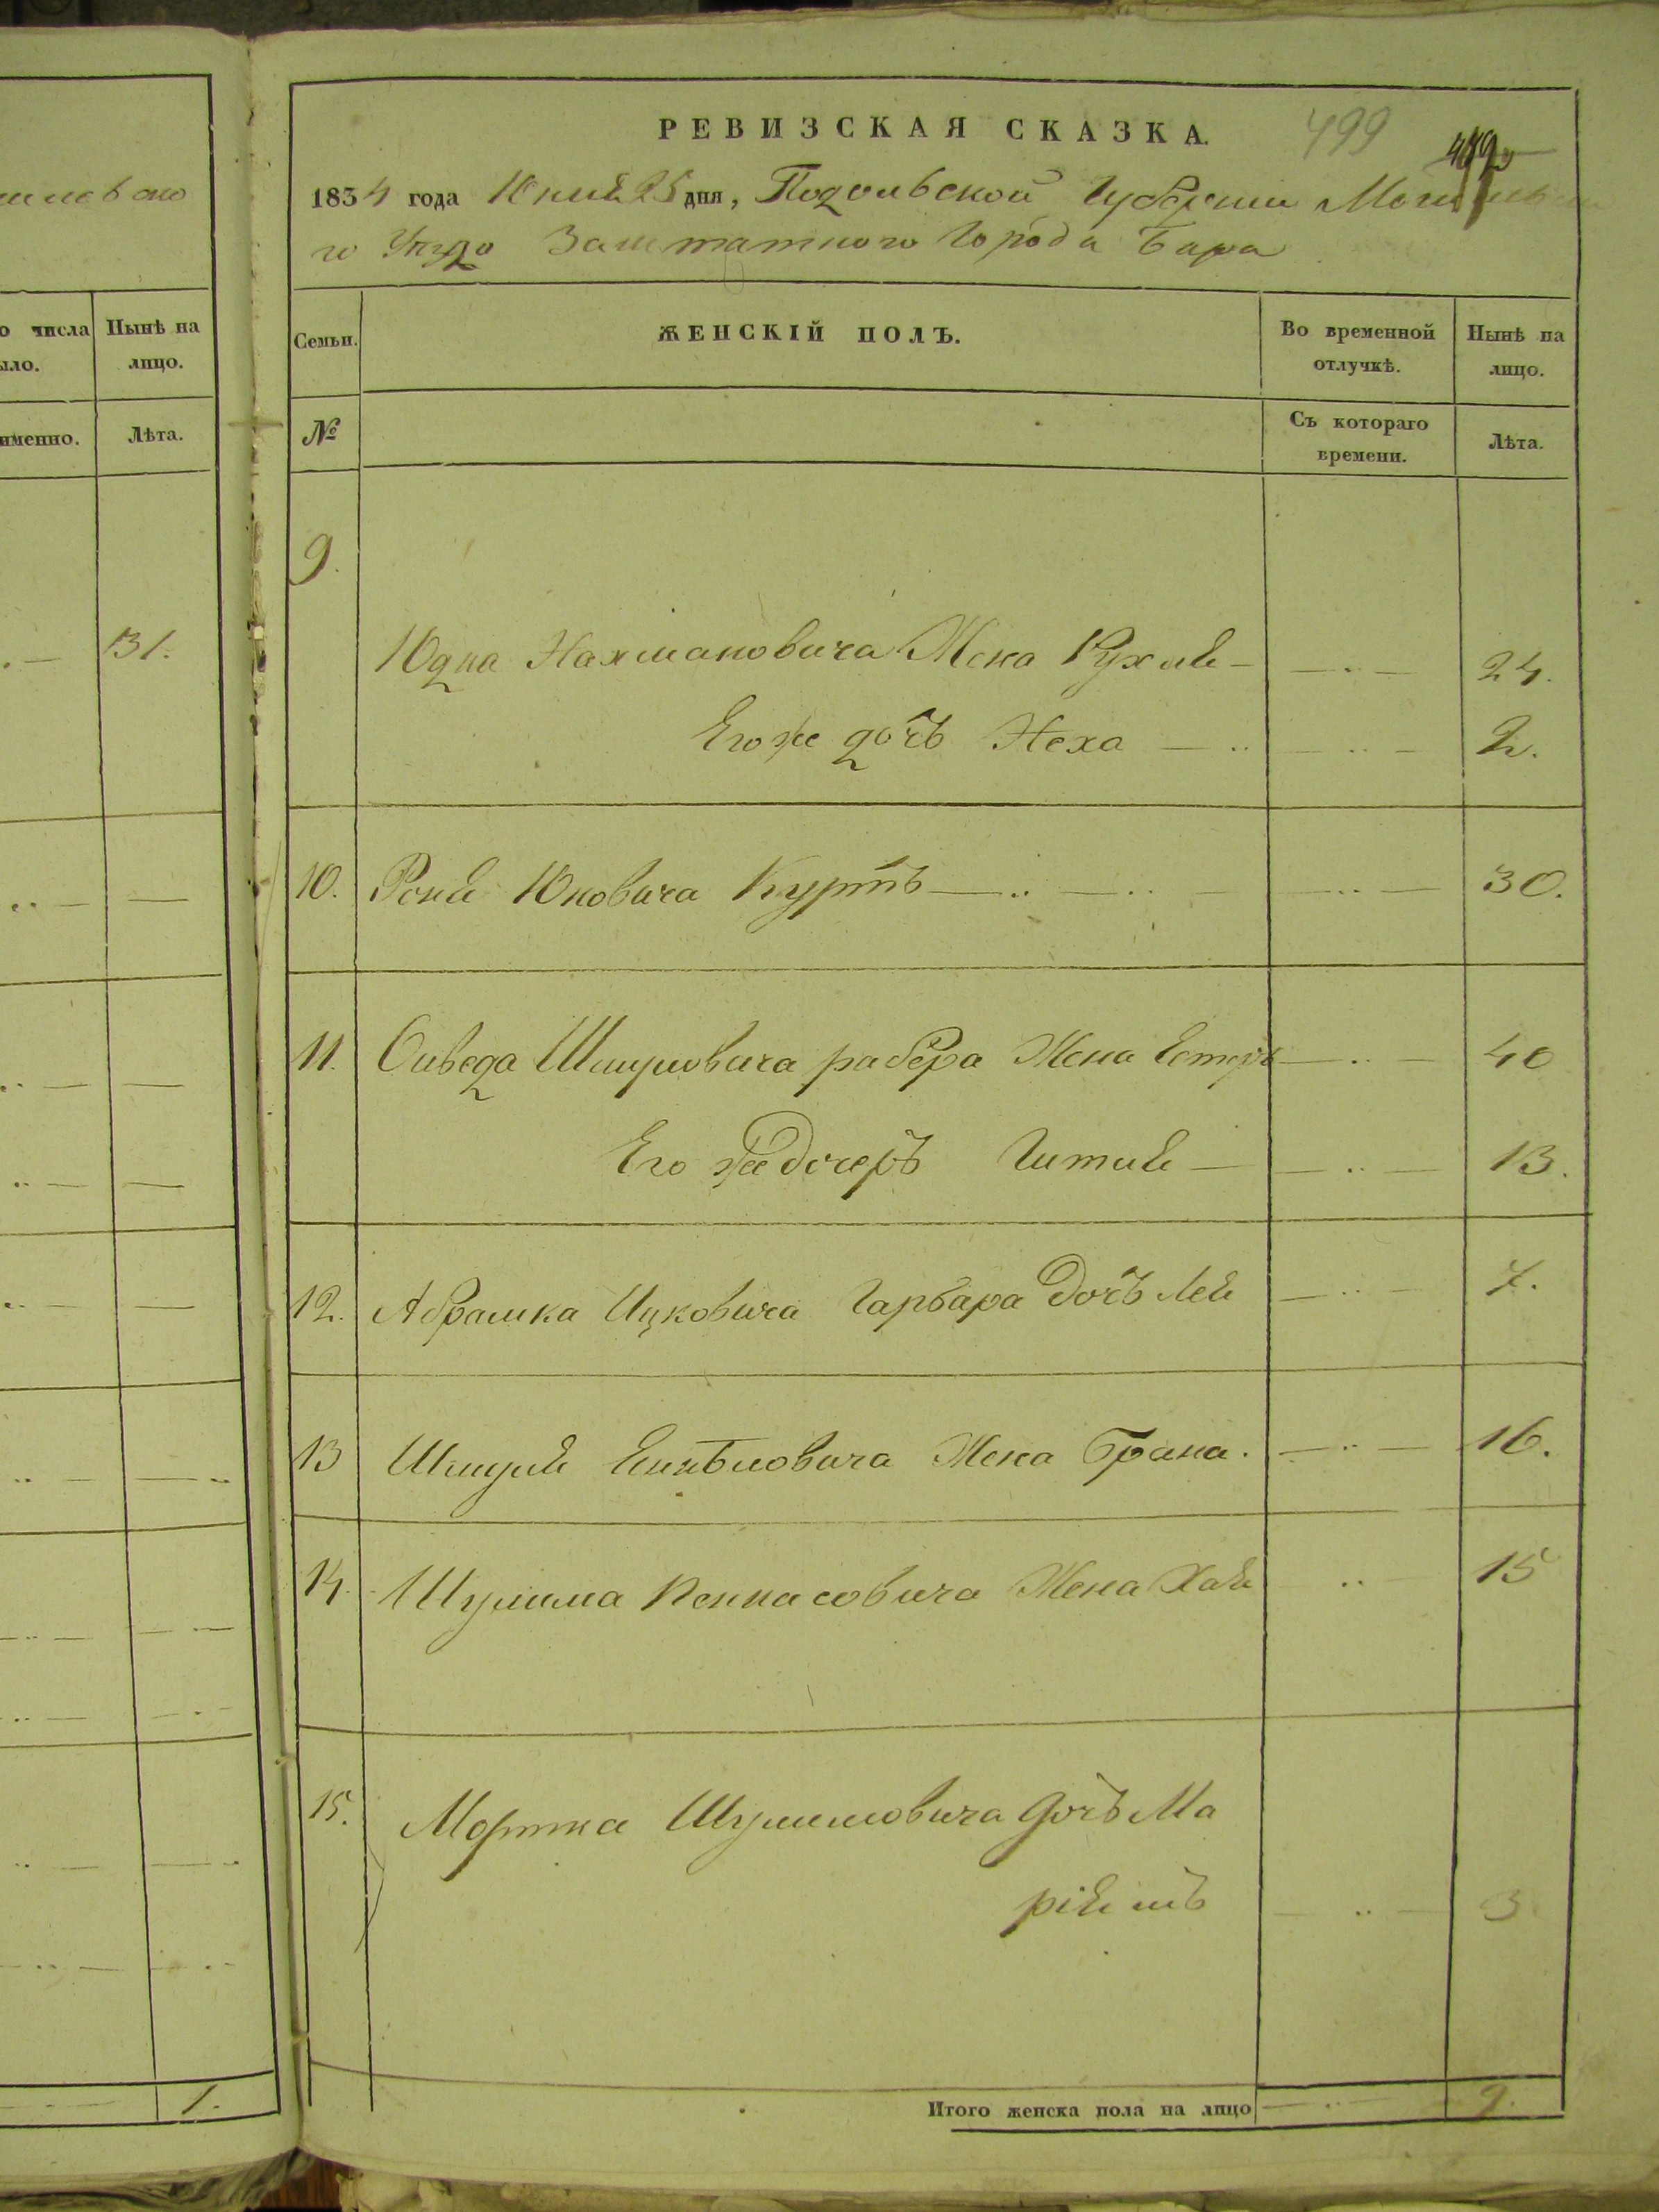 шлевско
о числа
ыло.
Нынѣ на
лицо.
именно.
Лѣта.
31.
1.
РЕВИЗСКАЯ СКАЗКА.
499
1834 года Юния 25 дня, Подольской Губернии Могилевска
го Уезда Заштатного Города Бара
Семьи.
ЖЕНСКІЙ ПОЛЪ.
Во временной
отлучкѣ.
Нынѣ на
лицо.
№
Съ котораго
времени.
Лѣта.
9.
Юдка Нахмановича Жена Рухля — — .. — 24.
Его же дочь Неха — .. — .. — 2.
10. Юковича — .. — .. — — .. — 30.
11. Шмуловича Жена Естеръ — .. — 40
Его же дочеръ Гитля — — .. — 13.
12. Абрамка Ицковича Гарбара дочъ Лея — .. — 7.
13 Шмуля Жена Брана. — .. — 16.
14. Шулима Пенкасовича Жена Хая .. — 15
15. Мортка Шулимовича дочъ Ма
ріямъ — .. — 3.
Итого женска пола на лицо — .. — 9.